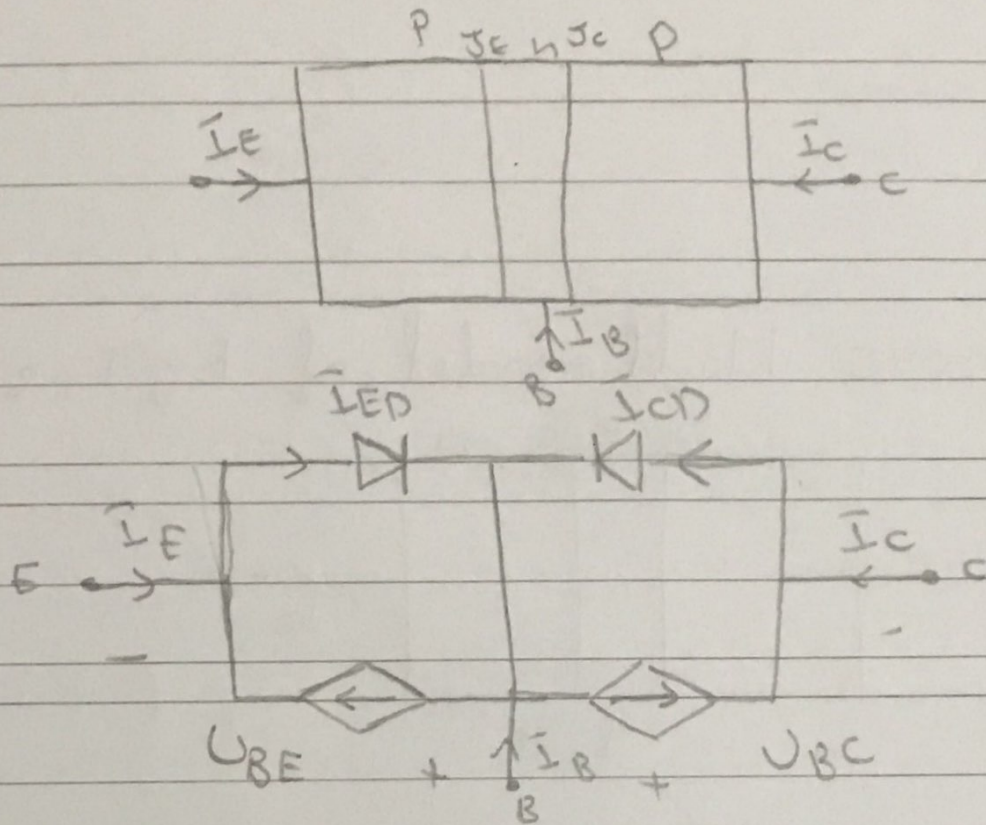 P JE n JC P
IE IC C
IB
B
IED ICD
IE IC
E C
- -
UBE + IB + UBC
B